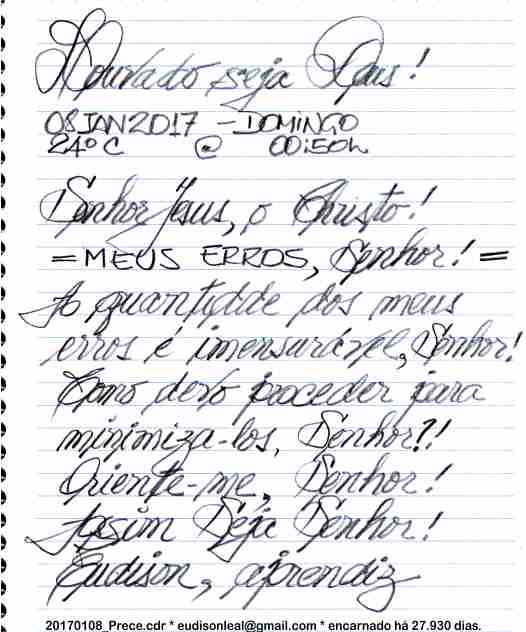 Louvado seja Deus!
08JAN2017 - DOMINGO
24º C @ 00:50h
Senhor Jesus, o Christo!
= MEUS ERROS, Senhor! =
A quantidade dos meus
erros é imensurável, Senhor!
Como devo proceder para
minimiza-los, Senhor?!
Oriente-me, Senhor!
Assim Seja Senhor!
Eudison, aprendiz
20170108_Prece.cdr * eudisonleal@gmail.com * encarnado há 27.930 dias.